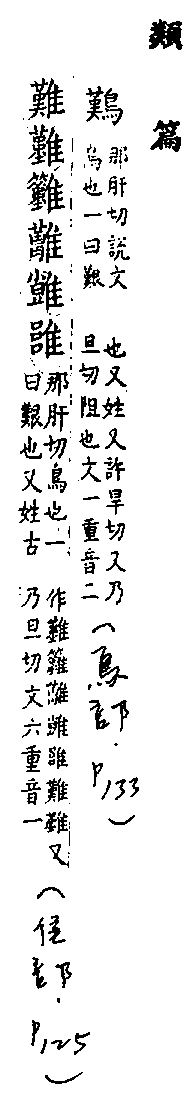 類篇
𪄿
那肝切說文
鳥也一曰艱
也又姓又許旱切又乃
旦切阻也文一重音二
(鳥部·P133)
難
那肝切鳥也一
曰艱也又姓古
作難又
乃旦切文六重音一
(隹部·P125)